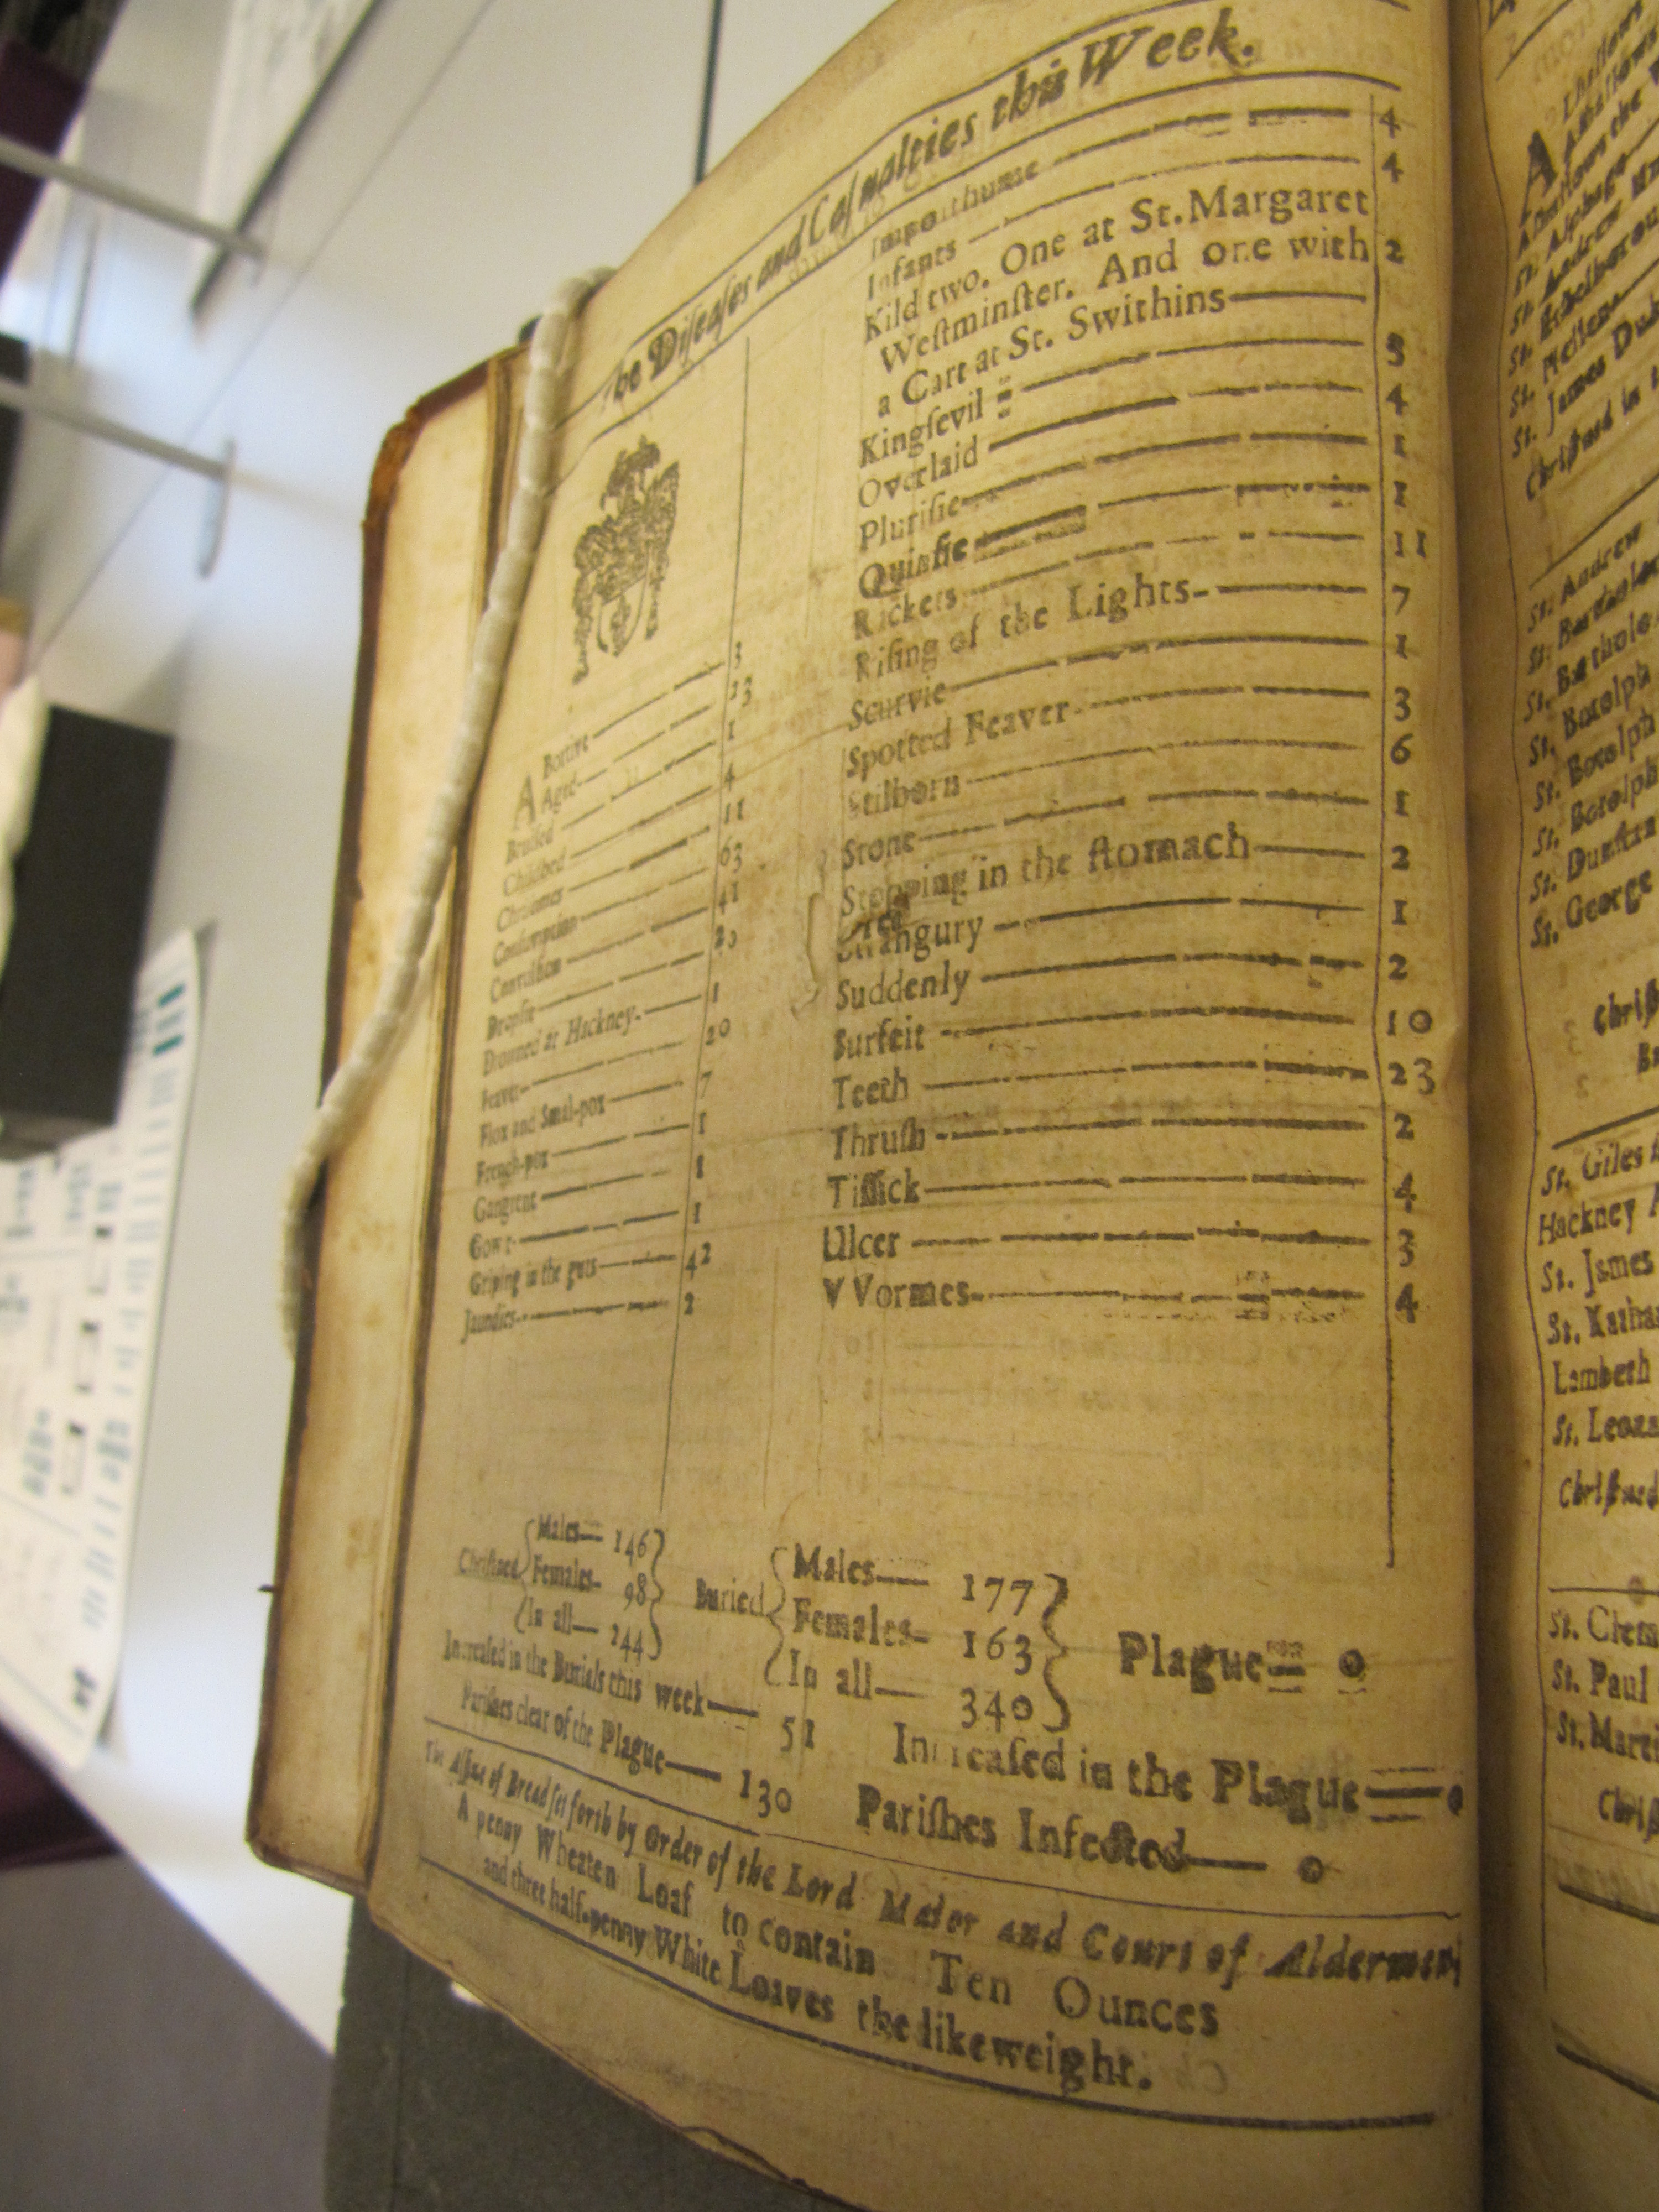 The Diſeaſes and Caſualties this Week.
ABortive 3
Aged 23
Bruiſed 1
Childbed 4
Chriſomes 11
Conſumption 63
Convulſion 41
Dropſie
Drowned at Hackney 1
Feaver 20
Flox and Small-pox 7
French-pox 1
Gangrene 1
Gowt 1
Griping in the guts 42
Jaundies 2
Impoſthume 4
Infants 4
Kild two. One at St. Margaret
Weſtminſter. And one with 2
a Cart at St. Swithins
Kingſevil
Overlaid 4
Pluriſie 1
Quinſie 1
Rickets 11
Riſing of the Lights 7
Scurvie 1
Spotted Feaver 3
Stilborn 6
Stone 1
Stopping in the ſtomach 2
Strangury 1
Suddenly 2
Surfeit 10
Teeth 23
Thruſh 2
Tiſſick 4
Ulcer 3
VVormes 4
Chriſtned
Males 146
Females 98
In all 244
Buried
Males 177
Females 163
In all 340
Plague 0
Increaſed in the Burials this week 51
Increaſed in the Plague 0
Pariſhes clear of the Plague 130
Pariſhes Infected 0
The Aſſize of Bread ſet forth by Order of the Lord Maior and Court of Aldermen,
A penny Wheaten Loaf to contain Ten Ounces
and three half-penny White Loaves the like weight.
A
St. Andrew
St. Botolph
St. Botolph
St. Botolph
St. Dunſtan
St. George
St. Giles
Hackney
St. James
St. Katha
Lambeth
St. Leona
St. Clem
St. Paul
St. Marti